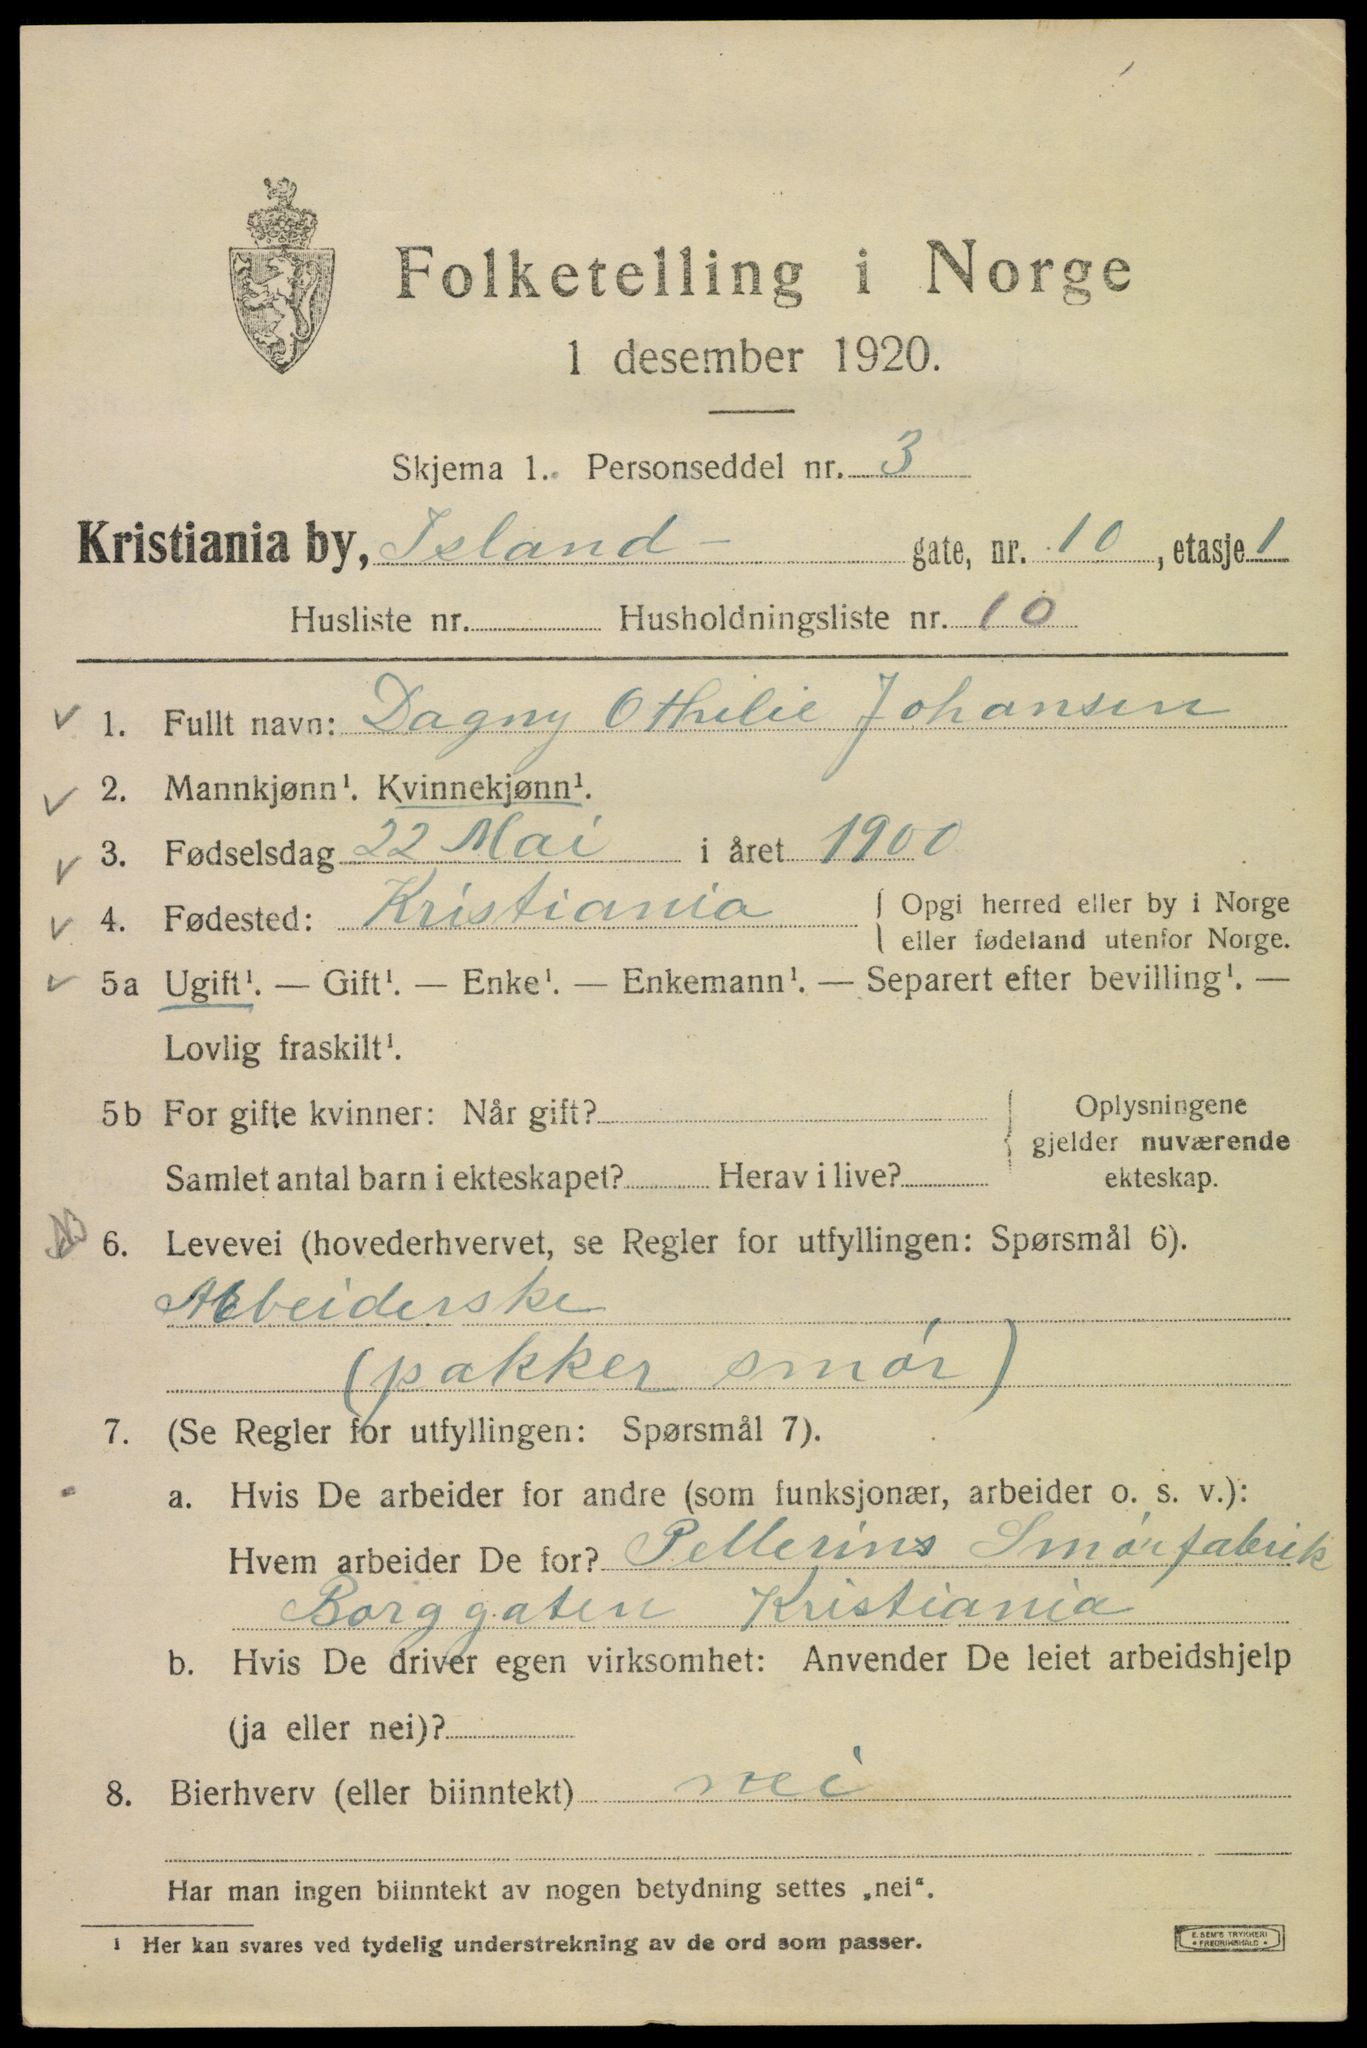 Folketelling i Norge
1 desember 1920.
Skjema 1. Personseddel nr. 3
Kristiania by, Island- gate, nr. 10, etasje 1
Husliste nr. Husholdningsliste nr. 10
1. Fullt navn: Dagny Othilie Johansen
2. Mannkjønn¹. Kvinnekjønn¹.
3. Fødselsdag 22 Mai i året 1900
4. Fødested: Kristiania { Opgi herred eller by i Norge
eller fødeland utenfor Norge.
5a Ugift¹. — Gift¹. — Enke¹. — Enkemann¹. — Separert efter bevilling¹. —
Lovlig fraskilt¹.
5b For gifte kvinner: Når gift? Oplysningene
gjelder nuværende
Samlet antal barn i ekteskapet? Herav i live? ekteskap.
6. Levevei (hovederhvervet, se Regler for utfyllingen: Spørsmål 6).
Arbeiderske
(pakker smør)
7. (Se Regler for utfyllingen: Spørsmål 7).
a. Hvis De arbeider for andre (som funksjonær, arbeider o. s. v.):
Hvem arbeider De for? Pellerins Smørfabrik
Borggaten Kristiania
b. Hvis De driver egen virksomhet: Anvender De leiet arbeidshjelp
(ja eller nei)?
8. Bierhverv (eller biinntekt) nei
Har man ingen biinntekt av nogen betydning settes „nei“.
¹ Her kan svares ved tydelig understrekning av de ord som passer.
E. SEM'S TRYKKERI
• FREDRIKSHALD •